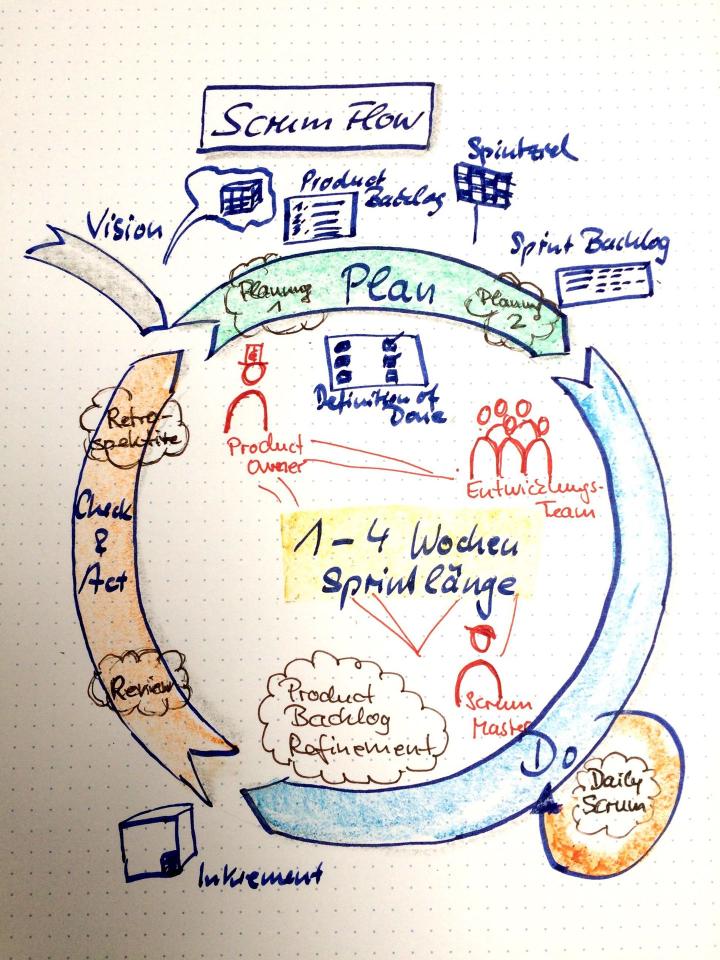 Scrum Flow
Sprintziel
Product
Backlog
Vision
Sprint Backlog
Planung
1
Plan
Planung
2
Definition of
Done
Retro-
spektive
Product
Owner
Entwicklungs-
Team
Check
&
Act
1-4 Wochen
Sprintlänge
Review
Product
Backlog
Refinement
Scrum
Master
Do
Daily
Scrum
Inkrement